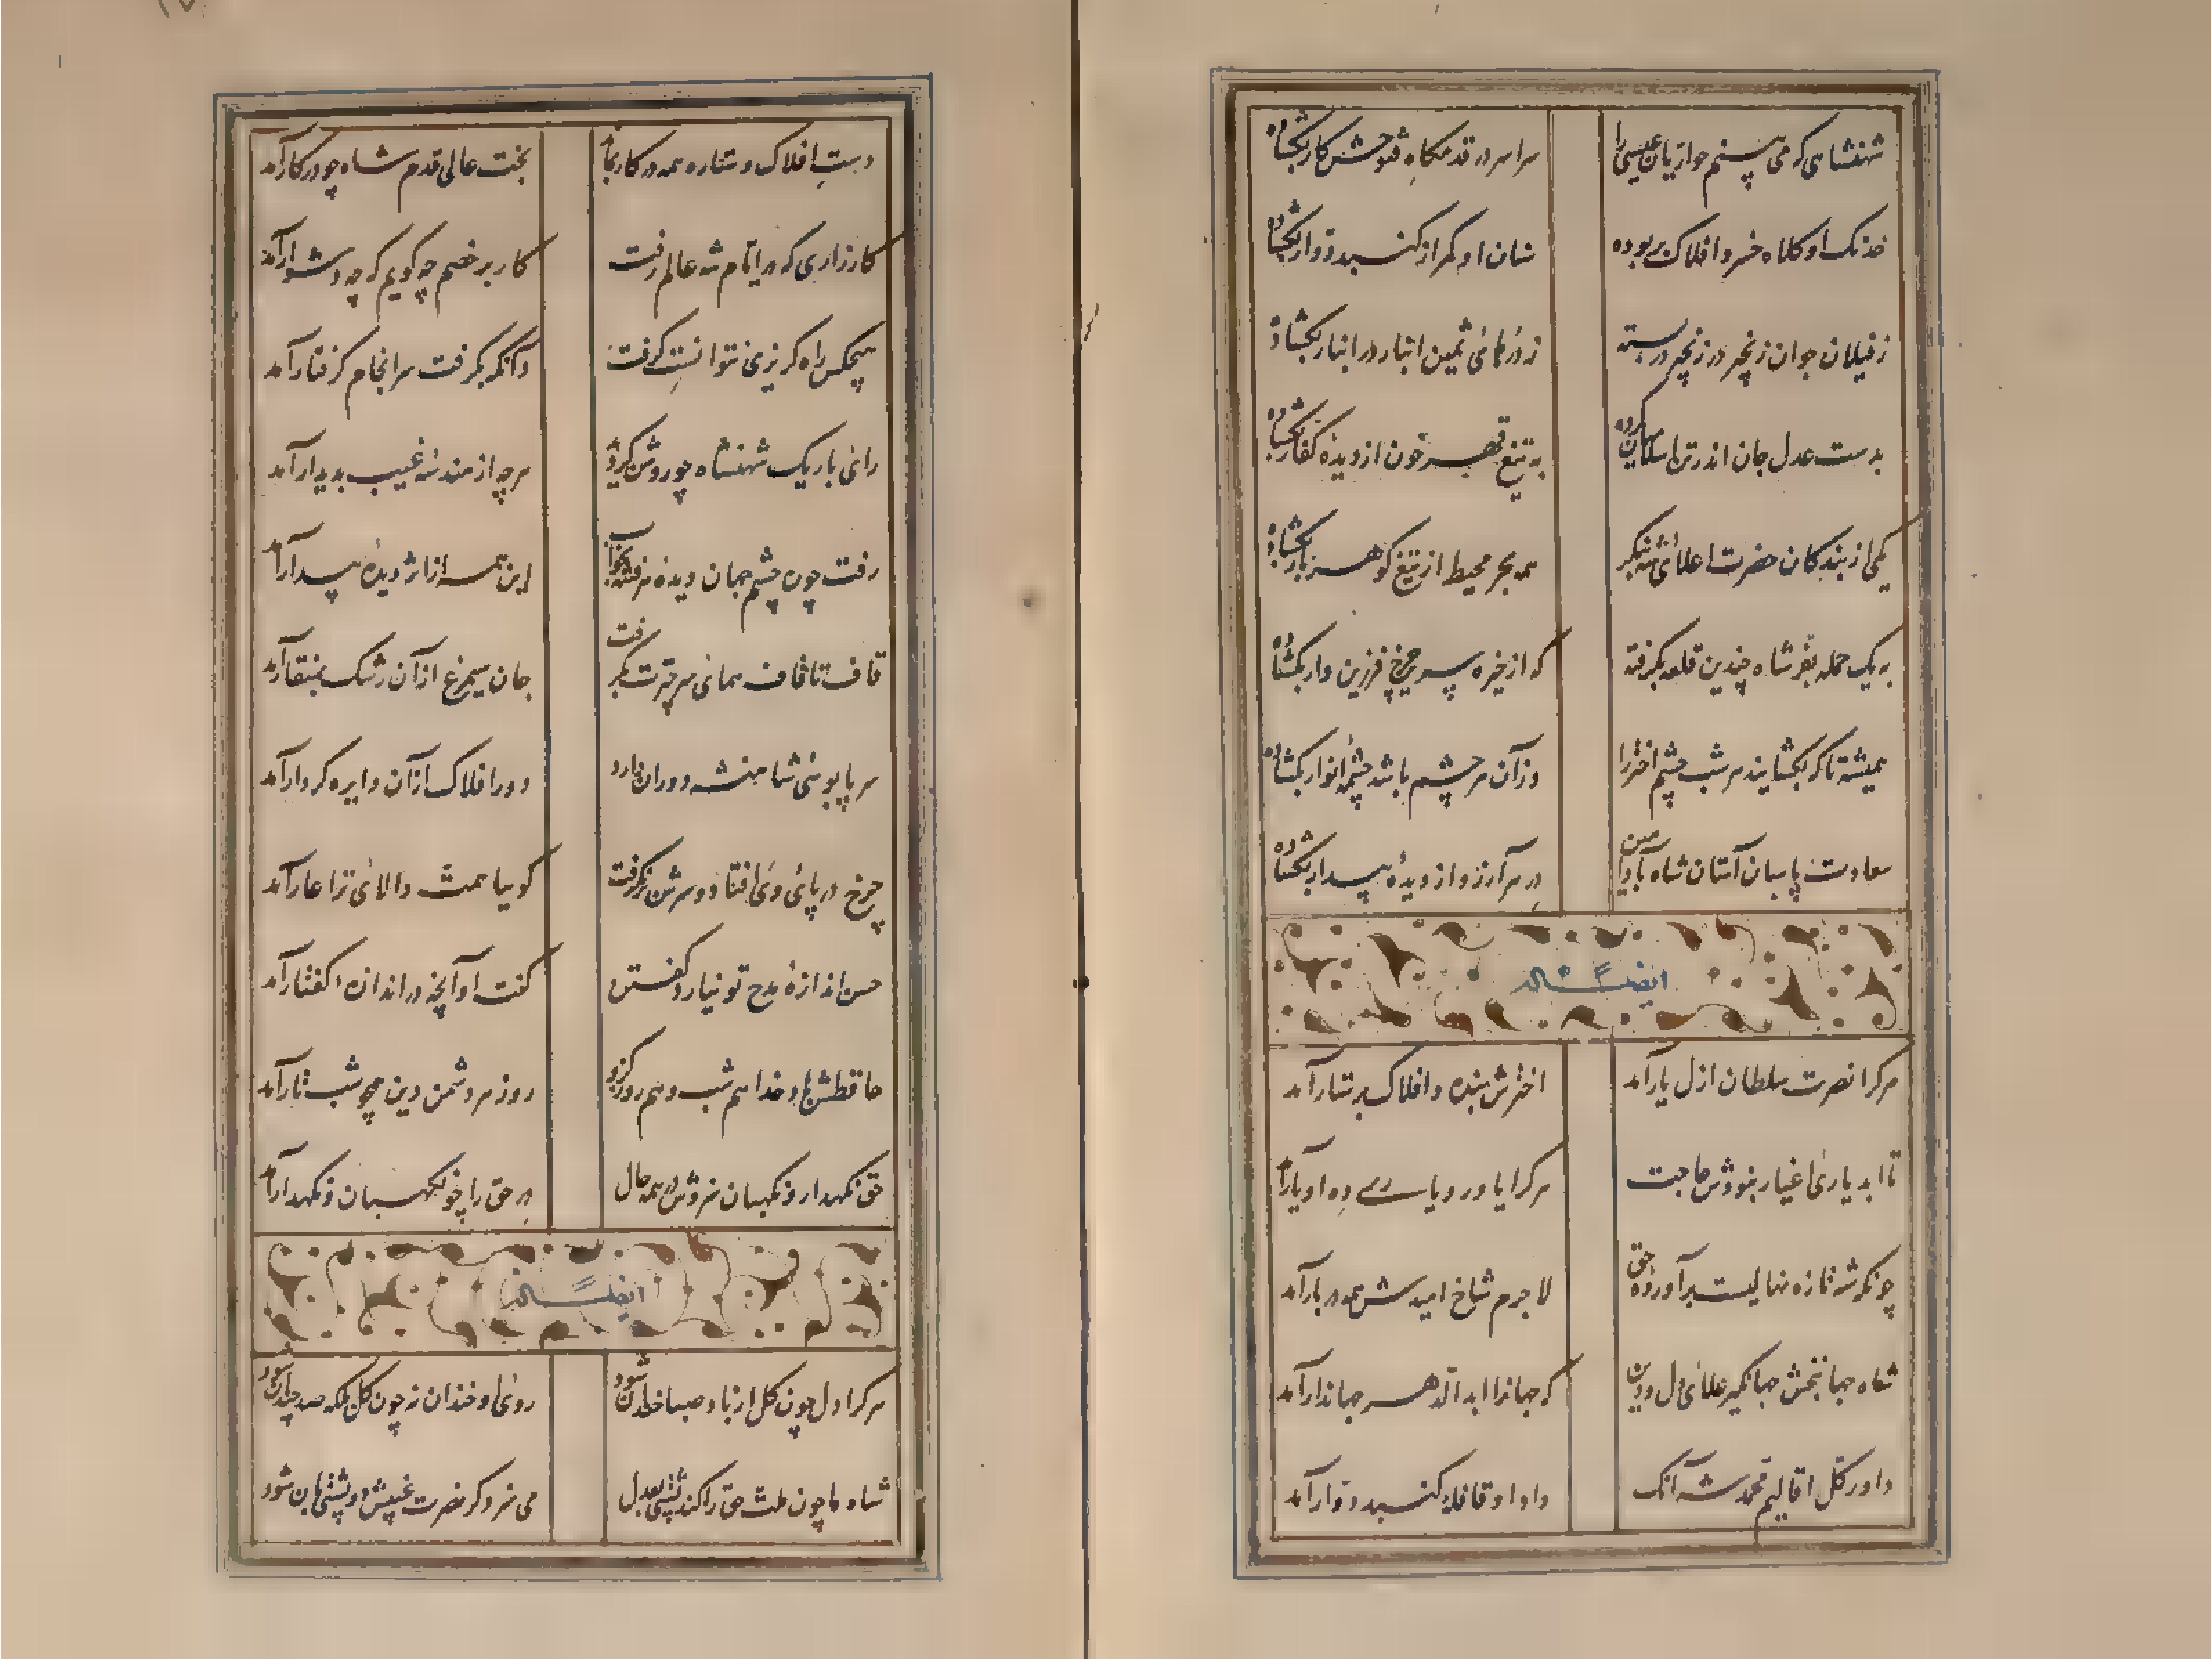 شهنشاهی که می بینم حواریان عیسی را سراسر در قدمگاه بکشاده
خدنک او کلاه خسرو افلاک بربوده سنان او کمر از کنبد دوار بکشاده
ز فیلان جوان زنجیر در زنجیر در بسته ز درهای ثمین انبار در انبار بکشاده
بدست عدل جان اندر تن اسلامیان کرده به تیغ قهر خون از دیده کفار بکشاده
یکی از بندکان حضرت اعلای شه بنکر همه بحر محیط از تیغ کوهر بار بکشاده
به یک حمله بفر شاه چندین قلعه بکرفته که از خیره سر چرخ فرزین وار بکشاده
همیشه تا که بکشایند هر شب چشم اختر را وزان هر چشم باشد چشمه انوار بکشاده
سعادت پاسبان آستان شاه بادا در هر آرزو از دیده بیدار بکشاده
ایضاً له
هرکرا نصرت سلطان ازل یار آمد اخترش بنده و افلاک پرستار آمد
تا ابد یاری اغیار نبودش حاجت هرکرا یاور و یاری ده او یار آمد
چونکه شه تازه نهالیست برآورده حق لاجرم شاخ امیدش همه در بار آمد
شاه جهانبخش جهانکیر علای دل و دین که جهانرا ابد الدهر جهاندار آمد
داور کل اقالیم محمد شه آنک داد او قافله کنبد دوار آمد
دست افلاک و ستاره همه در کار بماند بخت عالی قدم شاه چو در کار آمد
کارزاری که در ایام شه عالم رفت کار بر خصم چه کویم که چه دشوار آمد
هیچکس راه کریزی نتوانست کرفت وانکه بکرفت سرانجام کرفتار آمد
رای باریک شهنشاه چو روشن هرچه از غیب بدیدار آمد
رفت چون چشم جهان دیده هر فتنه بخواب این همه از اثر دیده بیدار آمد
قاف تا قاف همای سر چترت بکرفت جان سیمرغ ازان رشک بمنقار آمد
سر پابوسی شاهنشه دوران دارد دور افلاک ازان دایره کردار آمد
چرخ در پای وی افتاد و سرش برنکرفت کوییا همت والای ترا عار آمد
حسن اندازه مدح تو نیارد کفتن کفت او آنچه در اندازه کفتار آمد
حافظش باد خدا هم شب و هم روز کزو روز هر دشمن دین همچو شب تار آمد
حق نکهدار و نکهبان همه حال مر حق را چو نکهبان و نکهدار آمد
ایضاً له
هرکرا دل چون کل از باد صبا خندان شود روی او خندان نه چون کل بلکه صد چندان شود
شاه ما چون ملت حق را کند پشتی بعدل می سزد کر نصرت غیبیش پشتیبان شود